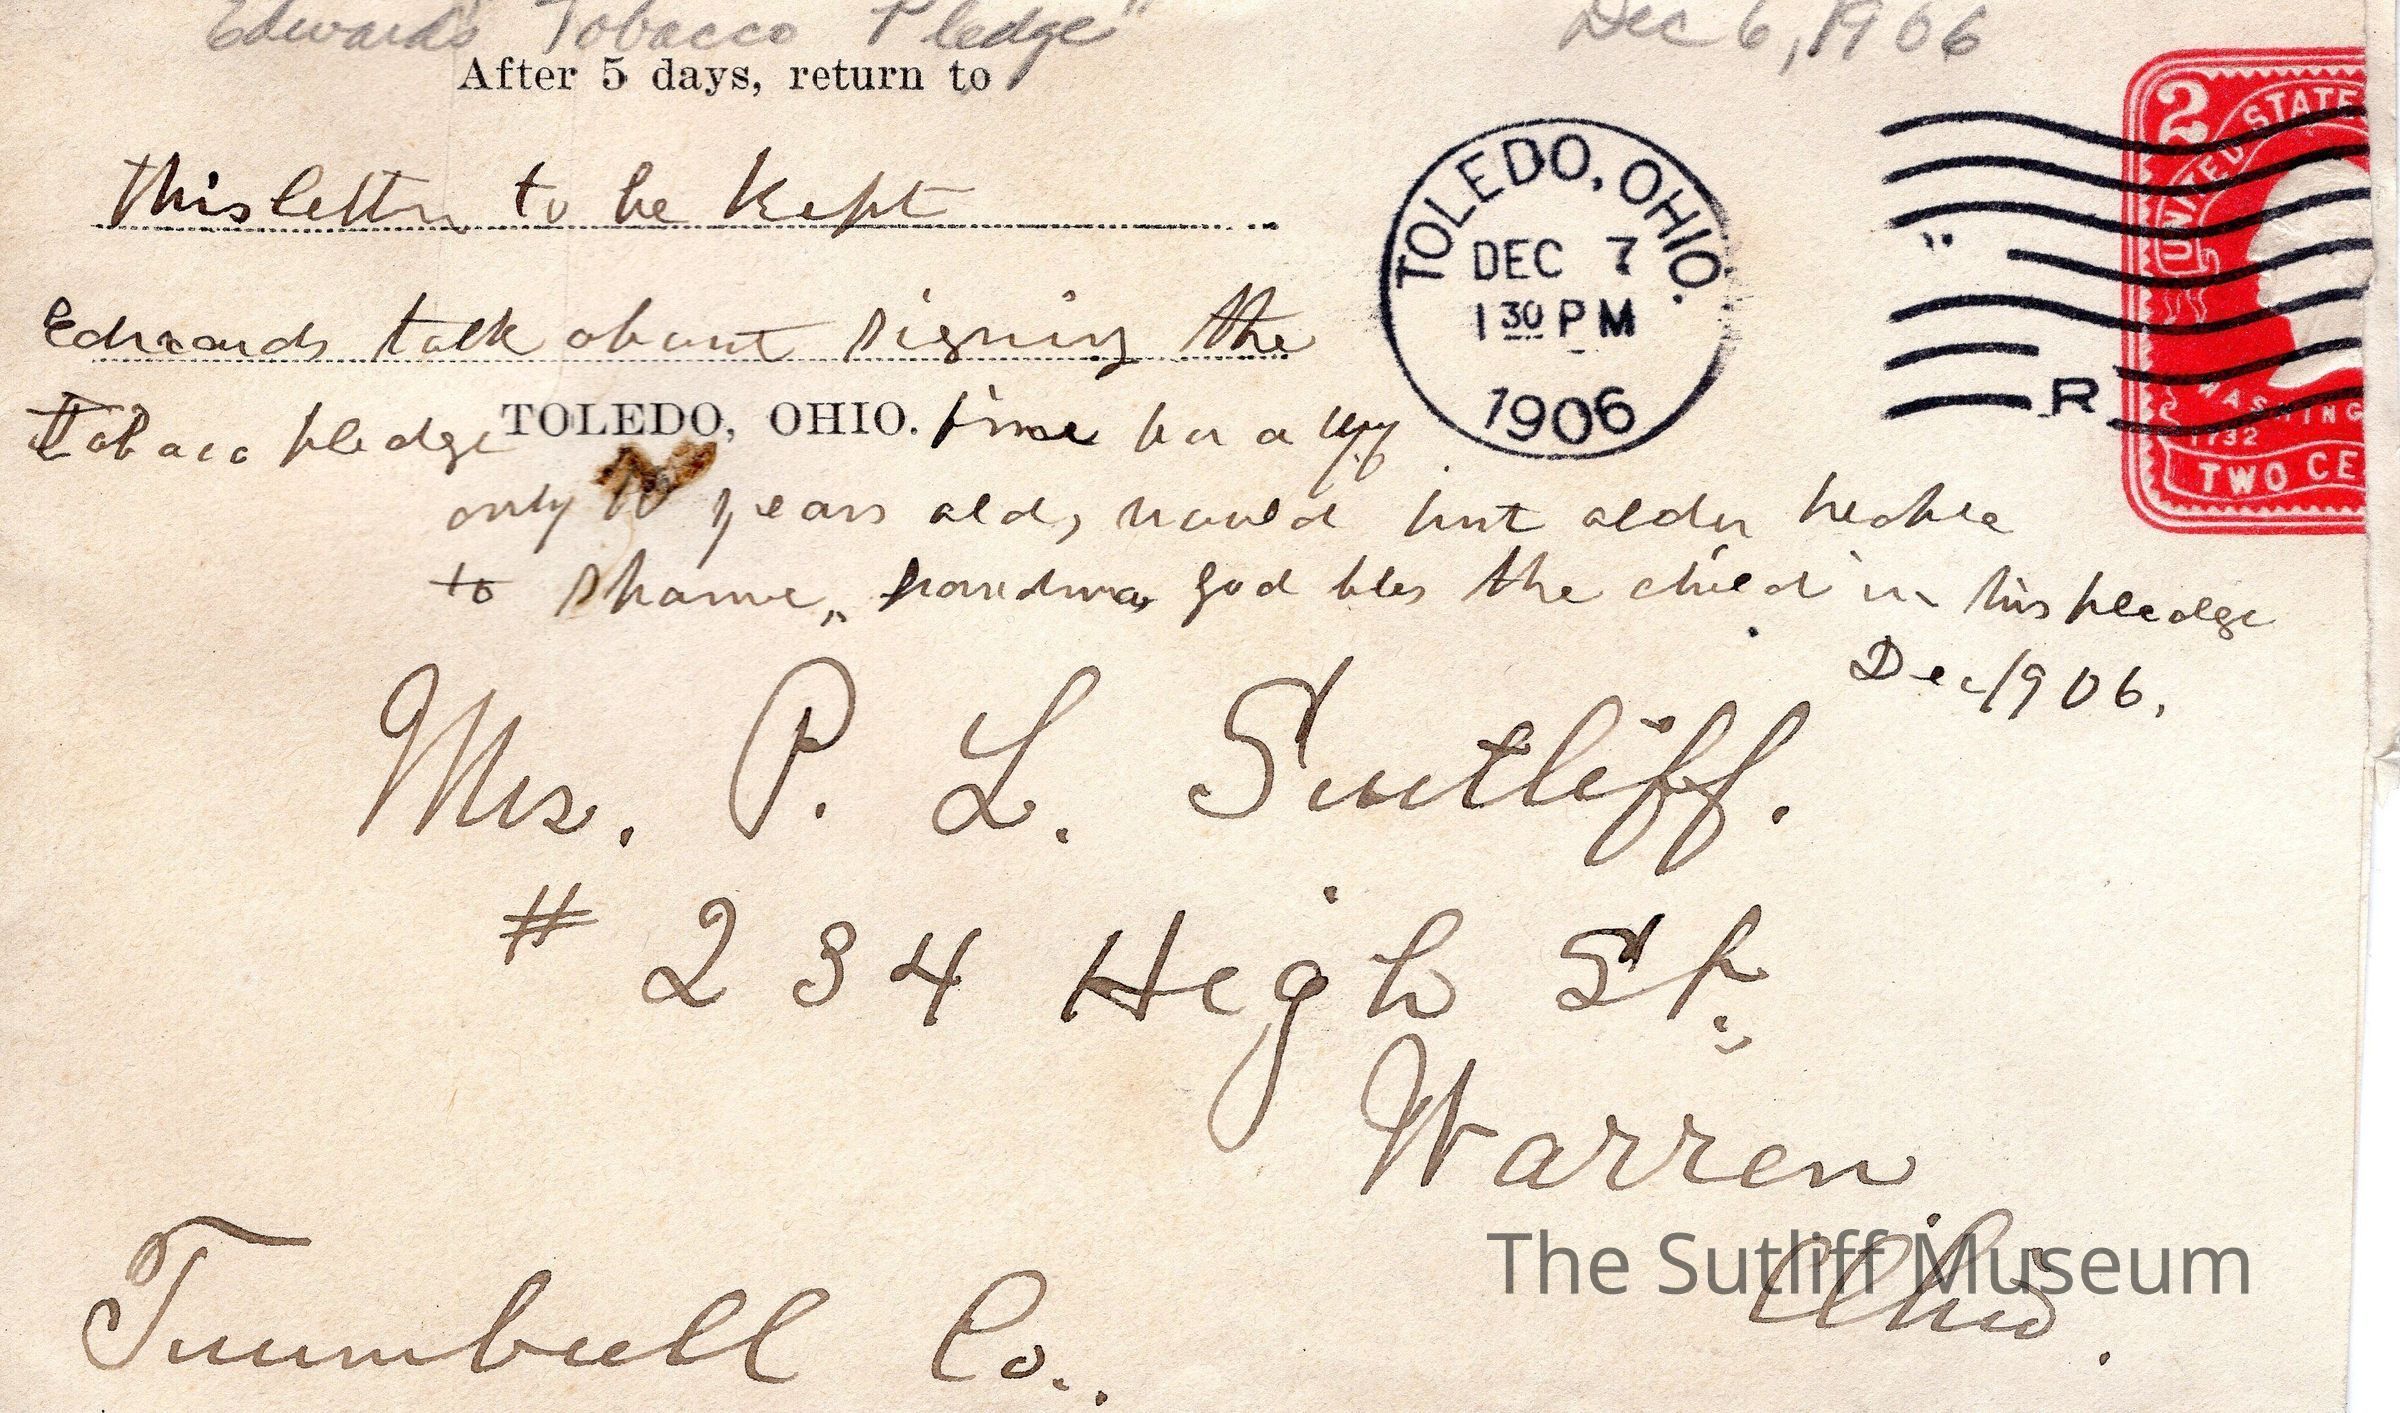 Edwards "Tobacco Pledge"
Dec 6, 1906
After 5 days, return to
this letter to be Kept
Edwards talk about signing the
Tobaco pledge
TOLEDO, OHIO.
fine for a
only 10 years old, would put older people
to shame, Grandma God bles the child in his pleadge
Dec 1906.
TOLEDO, OHIO.
DEC 7
1 30 PM
1906
R
2
UNITED STATE
WASHING
1732
TWO CE
Mrs. P. L. Sutliff.
# 234 High St.,
Warren
Ohio.
Trumbull Co..
The Sutliff Museum